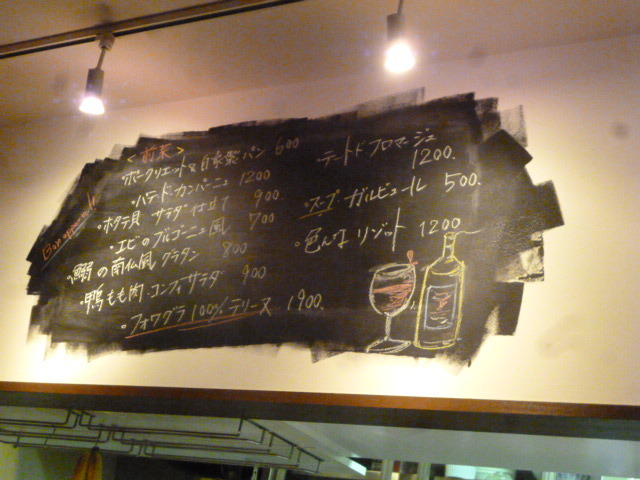 <前菜>
・ポークリエット&自家製パン 600
・パテ・ド・カンパーニュ 1200
・ホタテ貝 サラダ仕立て 900.
・エビのブルゴーニュ風 700
・鰯の南仏風グラタン 800
・鴨もも肉・コンフィサラダ 900
・フォワグラ100%テリーヌ 1900.
Bon appétit!!
・テートドフロマージュ
1200.
・スープ ガルビュール 500.
・色んなリゾット 1200